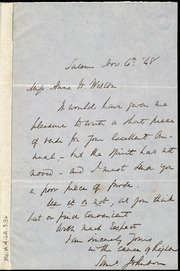 Salem Nov. 6th '48
Miss Anne W. Weston
It would have given me
pleasure to write a short piece
of verse for your Excellent An-
nual - but the Spirit has not
moved - and I must send you
a poor piece of Prose.
Use it or not, as you think
best or find convenient
With much respect
I am Sincerely Yours
in the cause of Right
Saml Johnson